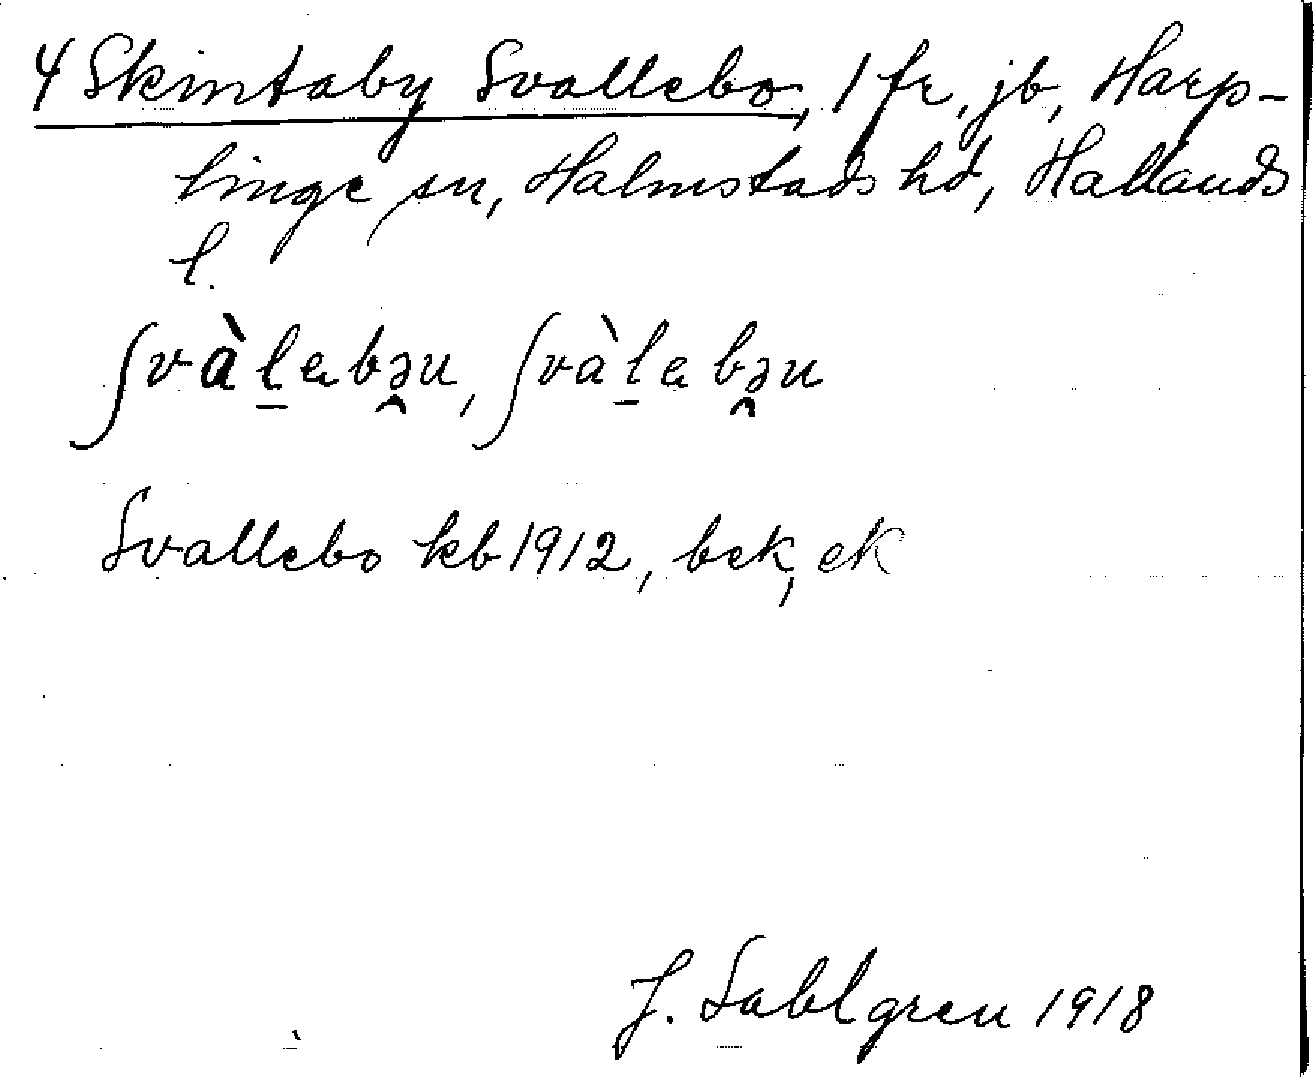 4 Skintaby Svallebo, 1 fr, jb, Harp-
linge sn, Halmstads hd, Hallands
l.
ʃvàl̠abə̯u, ʃvàl̠abə̯u
Svallebo kb 1912, bek, ek
J. Sahlgren 1918